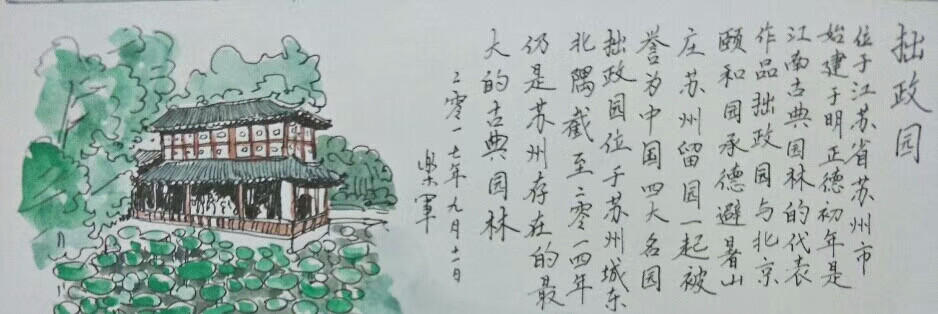 拙政园
位于江苏省苏州市
始建于明正德初年是
江南古典园林的代表
作品拙政园与北京
颐和园承德避暑山
庄苏州留园一起被
誉为中国四大名园
拙政园位于苏州城东
北隅截至二零一四年
仍是苏州存在的最
大的古典园林
二零一七年九月十一日
乐军